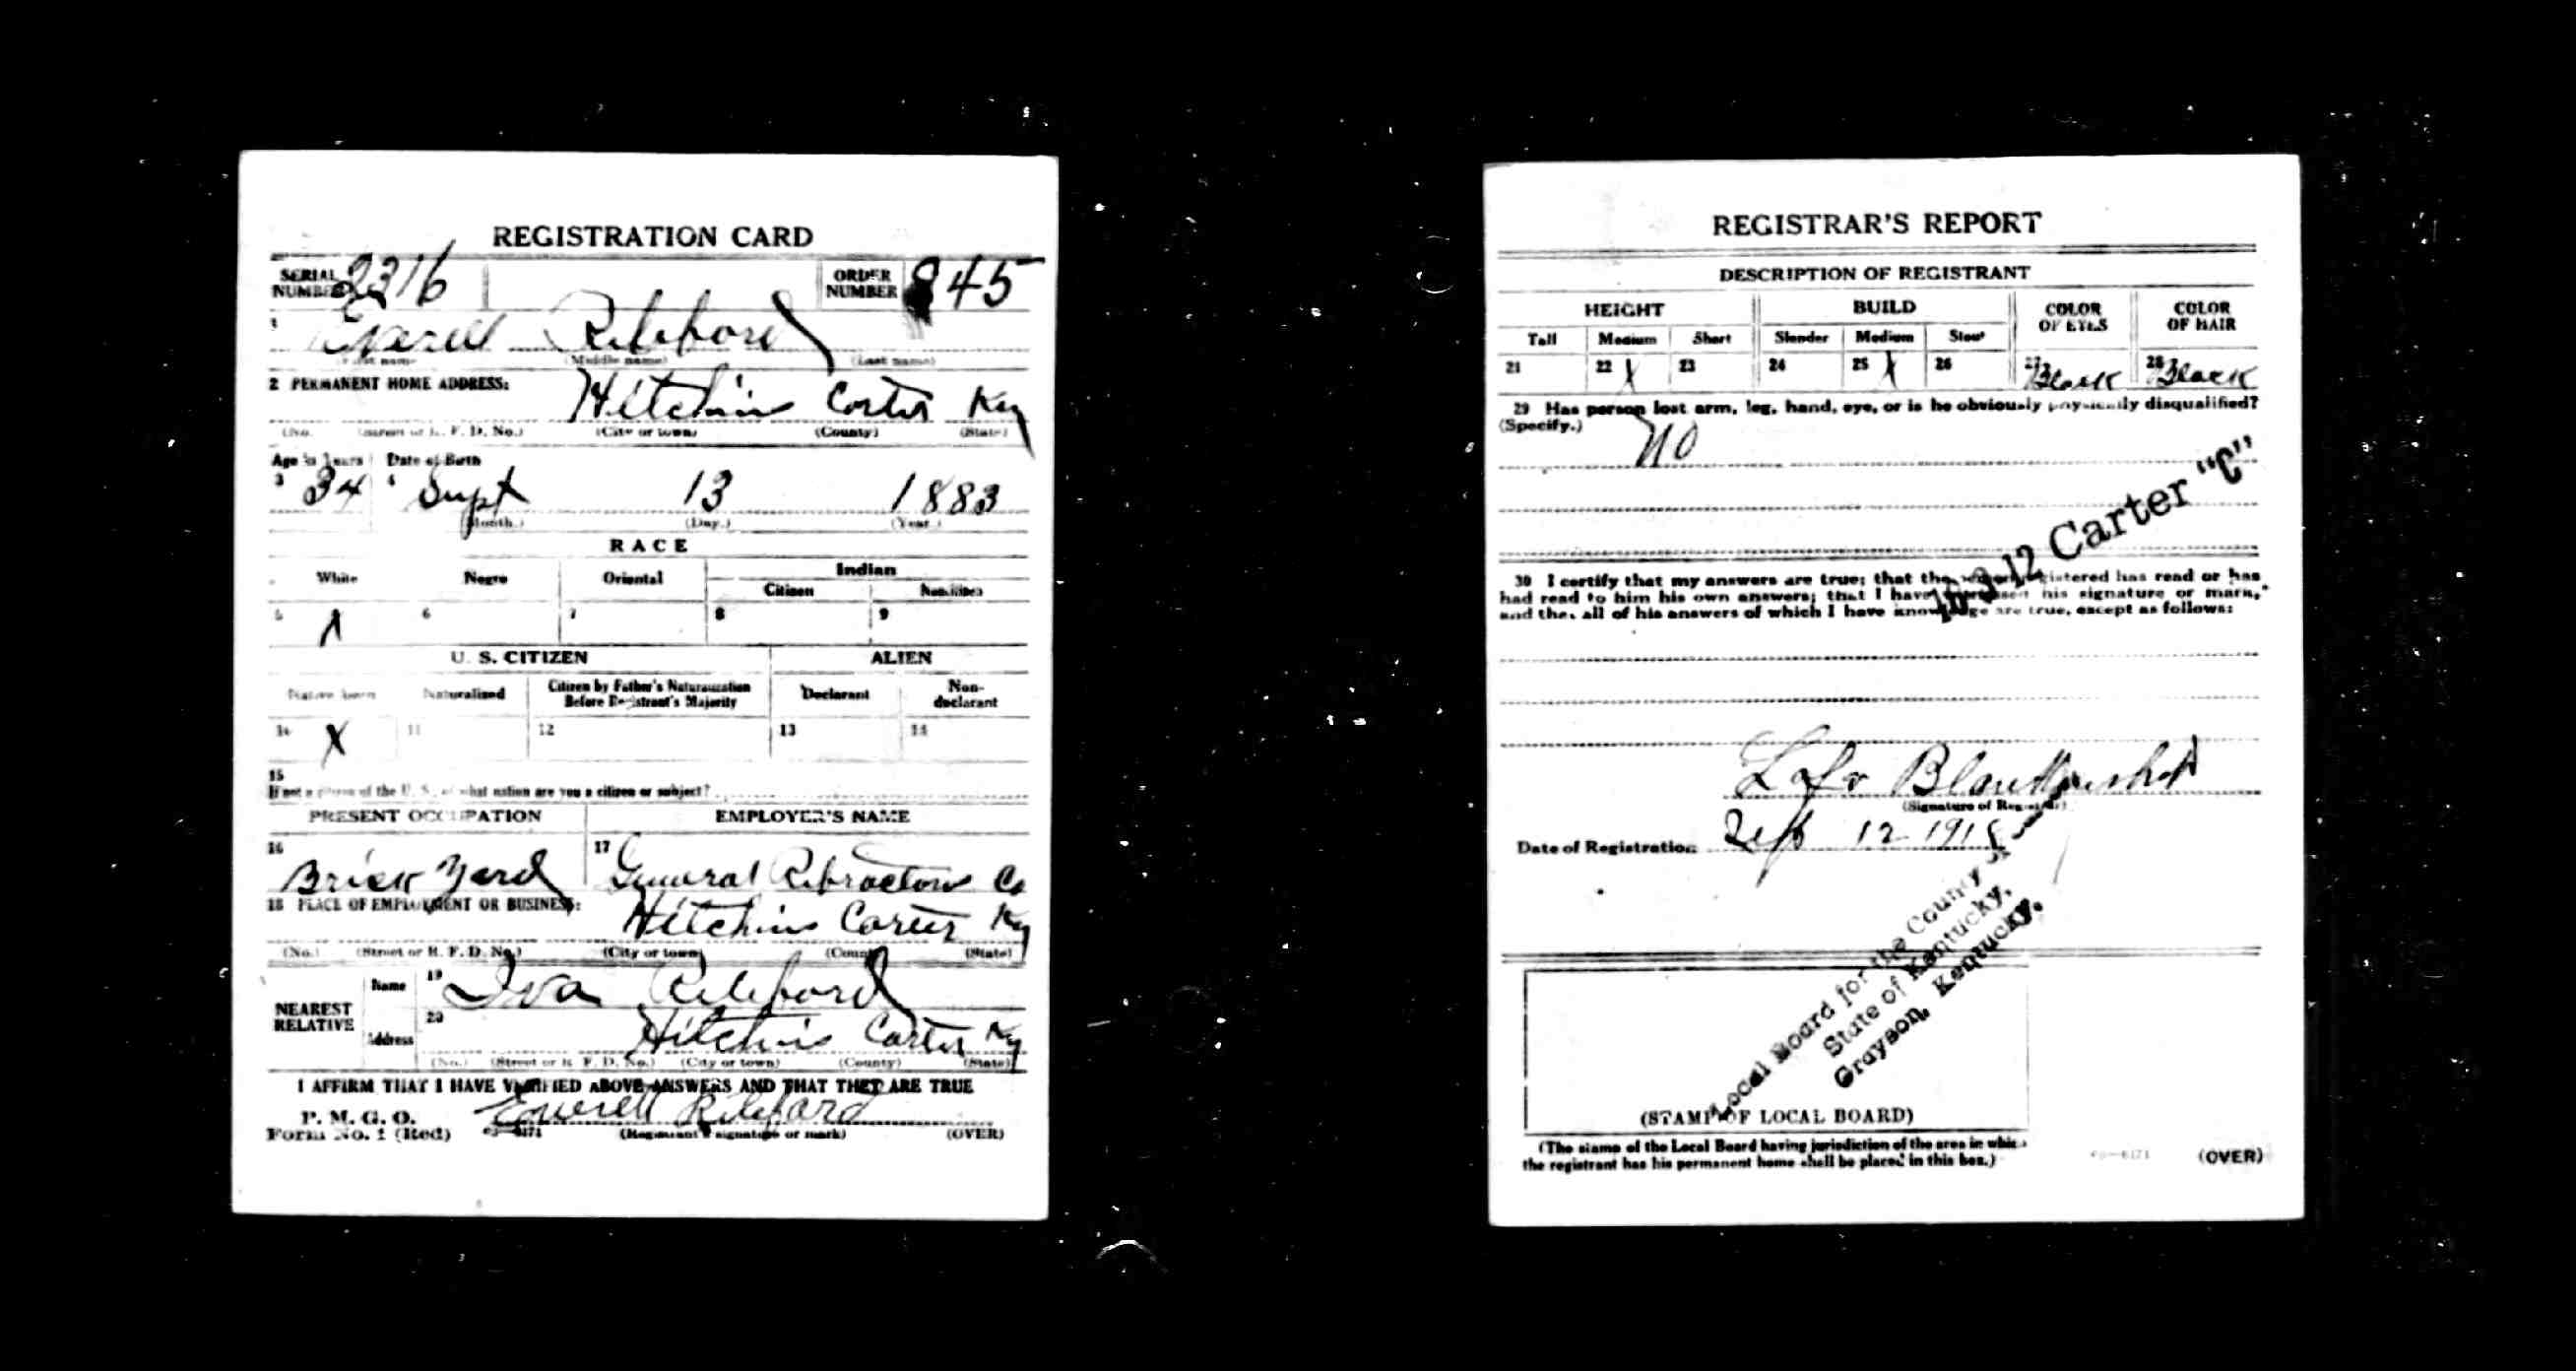 REGISTRATION CARD
SERIAL NUMBER 2316 ORDER NUMBER 845
1 Everett Rileford
(First name) (Middle name) (Last name)
2 PERMANENT HOME ADDRESS:
Hitchins Carter Ky
(No.) (Street or R. F. D. No.) (City or town) (County) (State)
Age in Years Date of Birth
3 34 4 Sept 13 1883
(Month.) (Day.) (Year.)
RACE
White Negro Oriental Indian
Citizen Noncitizen
5 X 6 7 8 9
U. S. CITIZEN ALIEN
Native Born Naturalized Citizen by Father's Naturalization Before Registrant's Majority Declarant Non-declarant
10 X 11 12 13 14
15
If not a citizen of the U. S., of what nation are you a citizen or subject?
PRESENT OCCUPATION EMPLOYER'S NAME
16 Brick Yard 17 General Refractors Co
18 PLACE OF EMPLOYMENT OR BUSINESS:
Hitchins Carter Ky
(No.) (Street or R. F. D. No.) (City or town) (County) (State)
NEAREST RELATIVE Name 19 Iva Rileford
Address 20 Hitchins Carter Ky
(No.) (Street or R. F. D. No.) (City or town) (County) (State)
I AFFIRM THAT I HAVE VERIFIED ABOVE ANSWERS AND THAT THEY ARE TRUE
P. M. G. O.
Form No. 1 (Red) Everett Rileford
(Registrant's signature or mark) (OVER)
REGISTRAR'S REPORT
DESCRIPTION OF REGISTRANT
HEIGHT BUILD COLOR OF EYES COLOR OF HAIR
Tall Medium Short Slender Medium Stout
21 22 X 23 24 25 X 26 27 Black 28 Black
29 Has person lost arm, leg, hand, eye, or is he obviously physically disqualified?
(Specify.) No
16-3-12 Carter "C"
30 I certify that my answers are true; that the person registered has read or has
had read to him his own answers; that I have witnessed his signature or mark,
and that all of his answers of which I have knowledge are true, except as follows:
(Signature of Registrar)
Date of Registration Sept 12 1918
Local Board for the County of
State of Kentucky,
Grayson, Kentucky.
(STAMP OF LOCAL BOARD)
(The stamp of the Local Board having jurisdiction of the area in which
the registrant has his permanent home shall be placed in this box.)
(OVER)